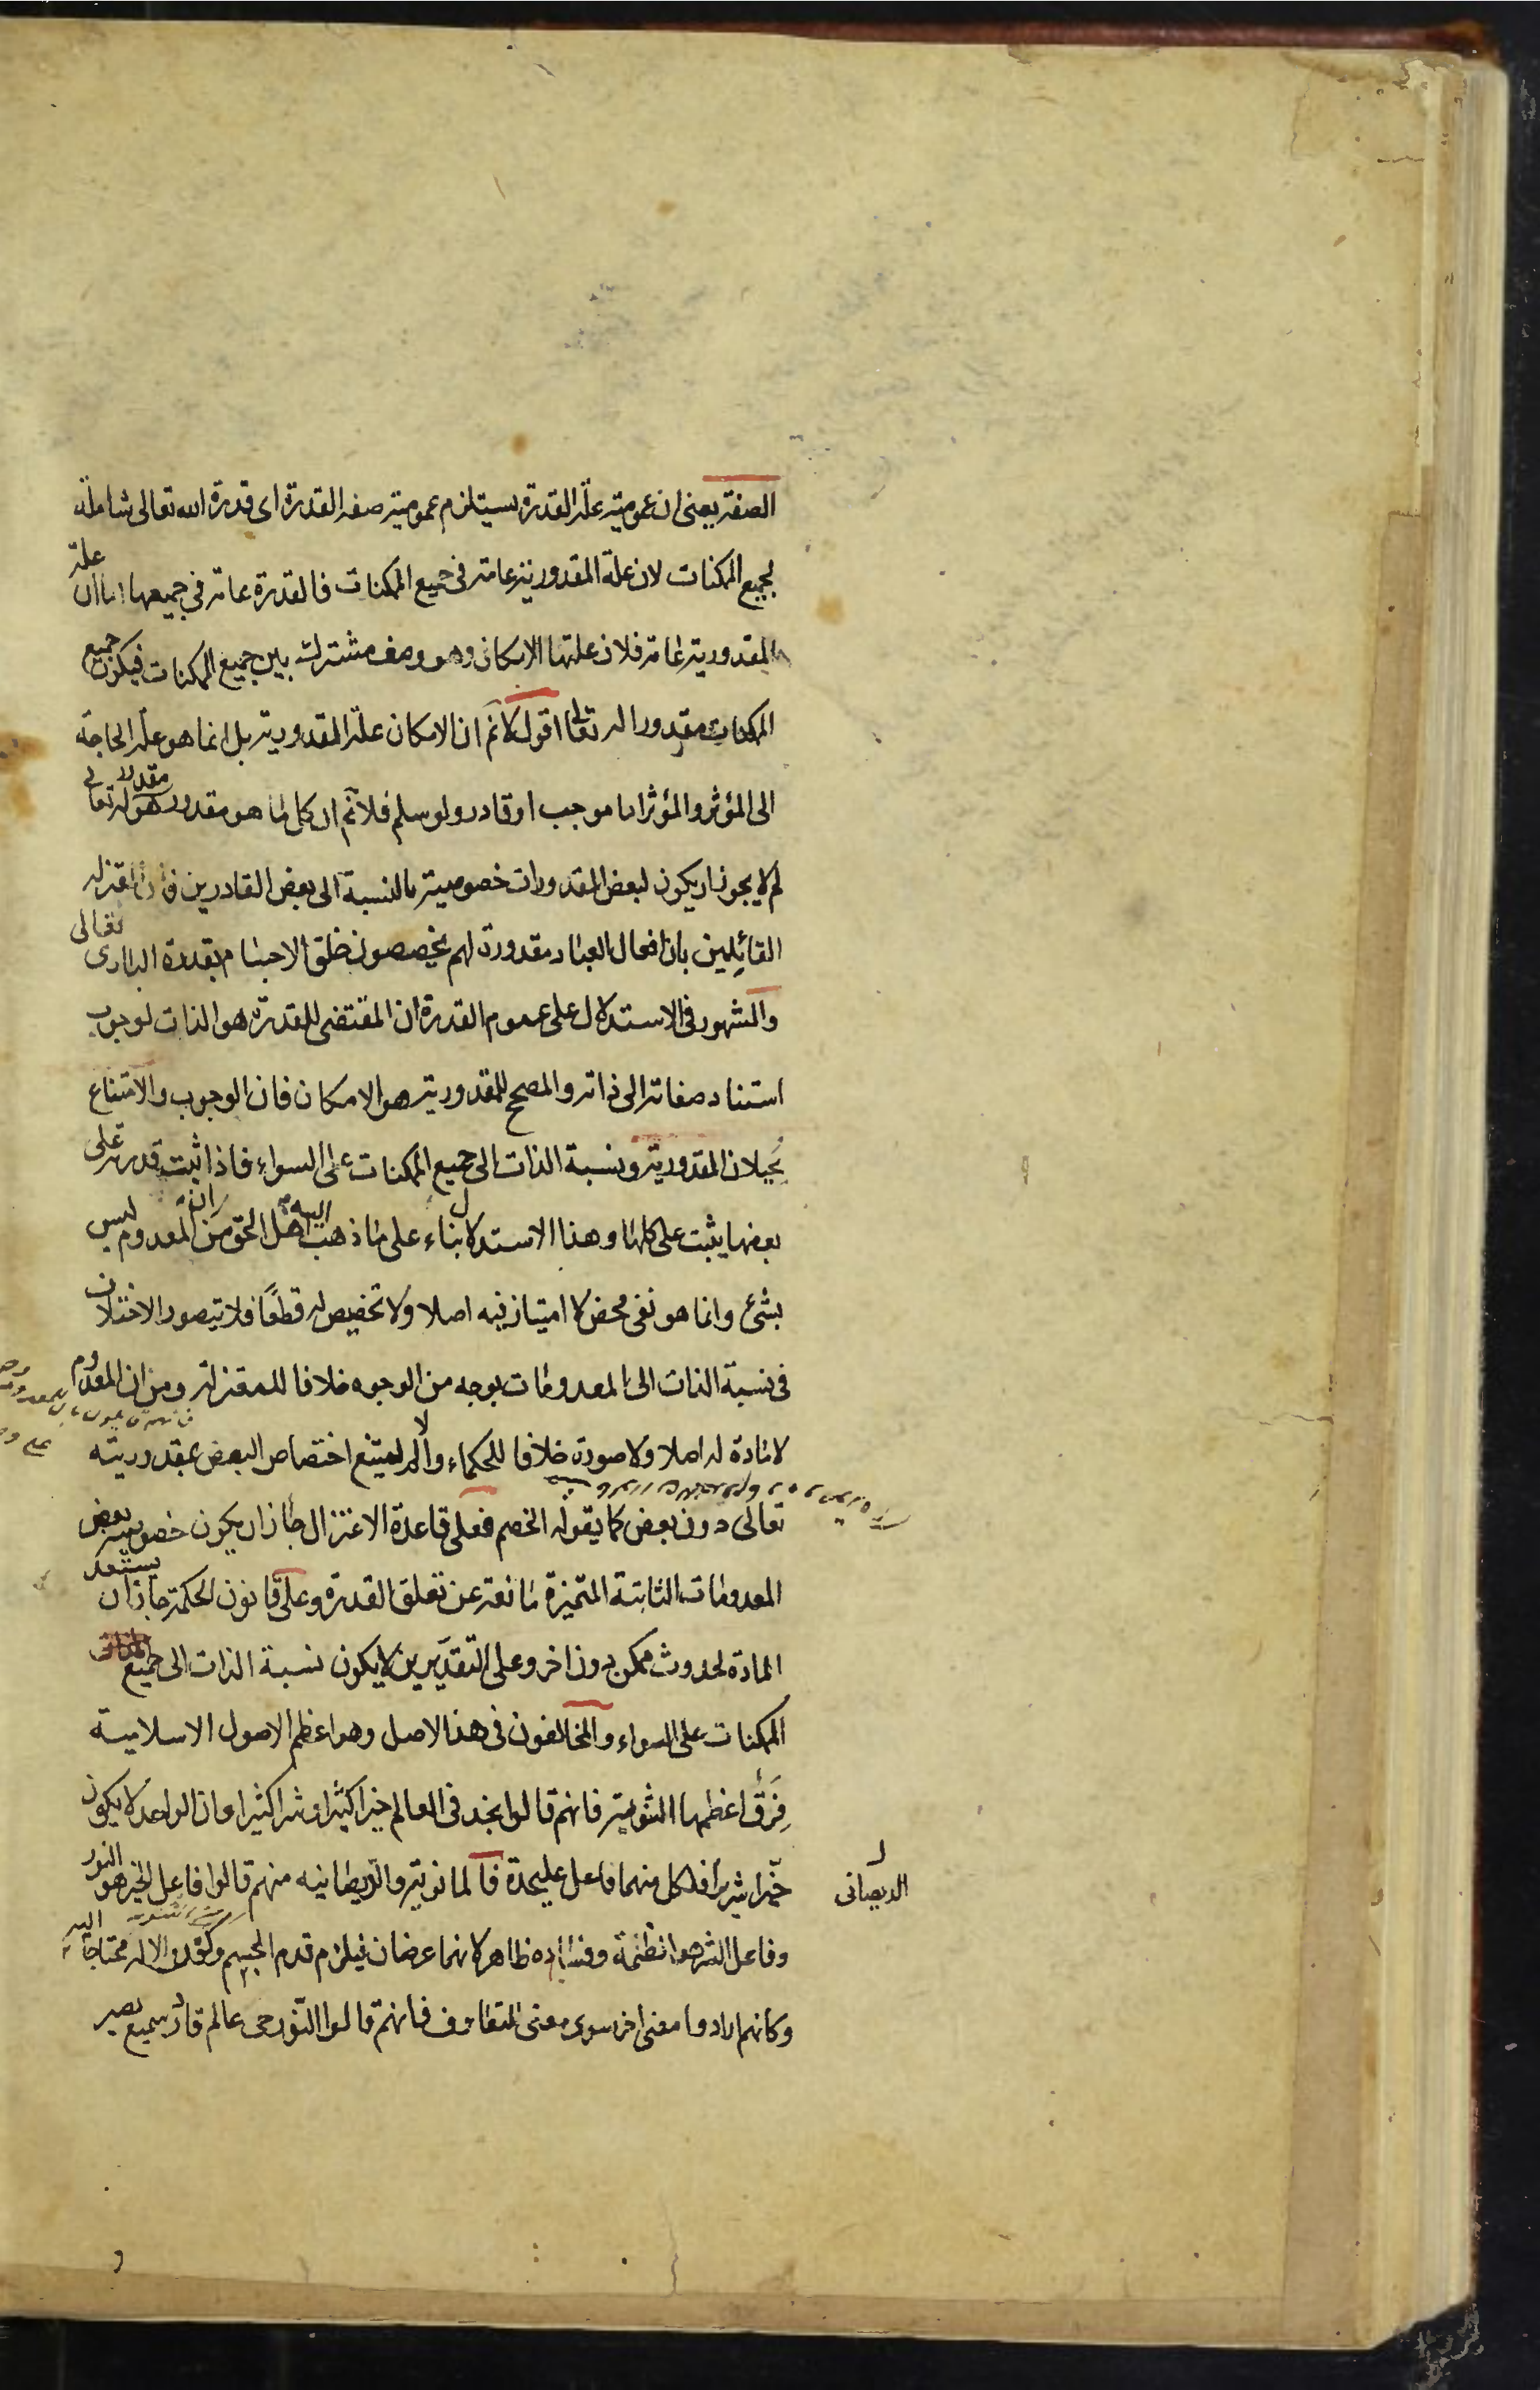 الصفة يعنى ان عمومية علة القدرة يستلزم عمومية صفة القدرة اى قدرة الله تعالى شاملة
لجميع الممكنات لان علة المقدورية عامة فى جميع الممكنات فالقدرة عامة في جميعها اما ان علة
المقدورية عامة فلان علتها الامكان وهو وصف مشترك بين جميع الممكنات فيكون جميع
الممكنات مقدورا له تعالى اقول لا نم ان الامكان علة المقدورية بل انما هو علة الحاجة
الى المؤثر والمؤثر اما موجب او قادر ولو سلم فلا نم ان كل ما هو مقدور هو مقدور له تعالى
لم لا يجوز ان يكون لبعض المقدورات خصوصية بالنسبة الى بعض القادرين فان المعتزلة
القائلين بان افعال العباد مقدورة لهم يخصصون خلق الاجسام بقدرة البارى تعالى
والمشهور فى الاستدلال على عموم القدرة ان المقتضى للقدرة هو الذات لوجوب
استناد صفاته الى ذاته والمصحح للمقدورية هو الامكان فان الوجوب والامتناع
يحيلان المقدورية ونسبة الذات الى جميع الممكنات على السواء فاذا ثبت قدرته على
بعضها يثبت على كلها وهذا الاستدلال بناء على ما ذهب اليه اهل الحق من ان المعدوم ليس
بشئ وانما هو نفى محض لا امتياز فيه اصلا ولا تخصيص له قطعًا فلا يتصور الاختلاف
فى نسبة الذات الى المعدومات بوجه من الوجوه خلافا للمعتزلة ومن ان المعدوم
لا مادة له اصلا ولا صورة خلافا للحكماء والا لم يمتنع اختصاص البعض بمقدوريته
تعالى دون بعض كما يقوله الخصم فعلى قاعدة الاعتزال جاز ان يكون خصوصية بعض
المعدومات الثابتة المتميزة مانعة عن تعلق القدرة وعلى قانون الحكمة جاز ان يستعد
المادة لحدوث ممكن دون اخر وعلى التقديرين لا يكون نسبة الذات الى جميع
الممكنات على السواء والمخالفون فى هذا الاصل وهو اعظم الاصول الاسلامية
فِرَقٌ اعظمها الثنوية فانهم قالوا نجد فى العالم خيرا كثيرا وشرا كثيرا وان الواحد لا يكون
خيّرا شريرا فلكل منهما فاعل عليحدة فالمانوية والديصانية منهم قالوا فاعل الخير هو النور
الديصانى
وفاعل الشر هو الظلمة وفساده ظاهر لانهما عرضان فيلزم قدم الجسم وكون الاله محتاجا اليه
وكانهم ارادوا معنى اخر سوى معنى المتعارف فانهم قالوا النّور حى عالم قادر سميع بصير